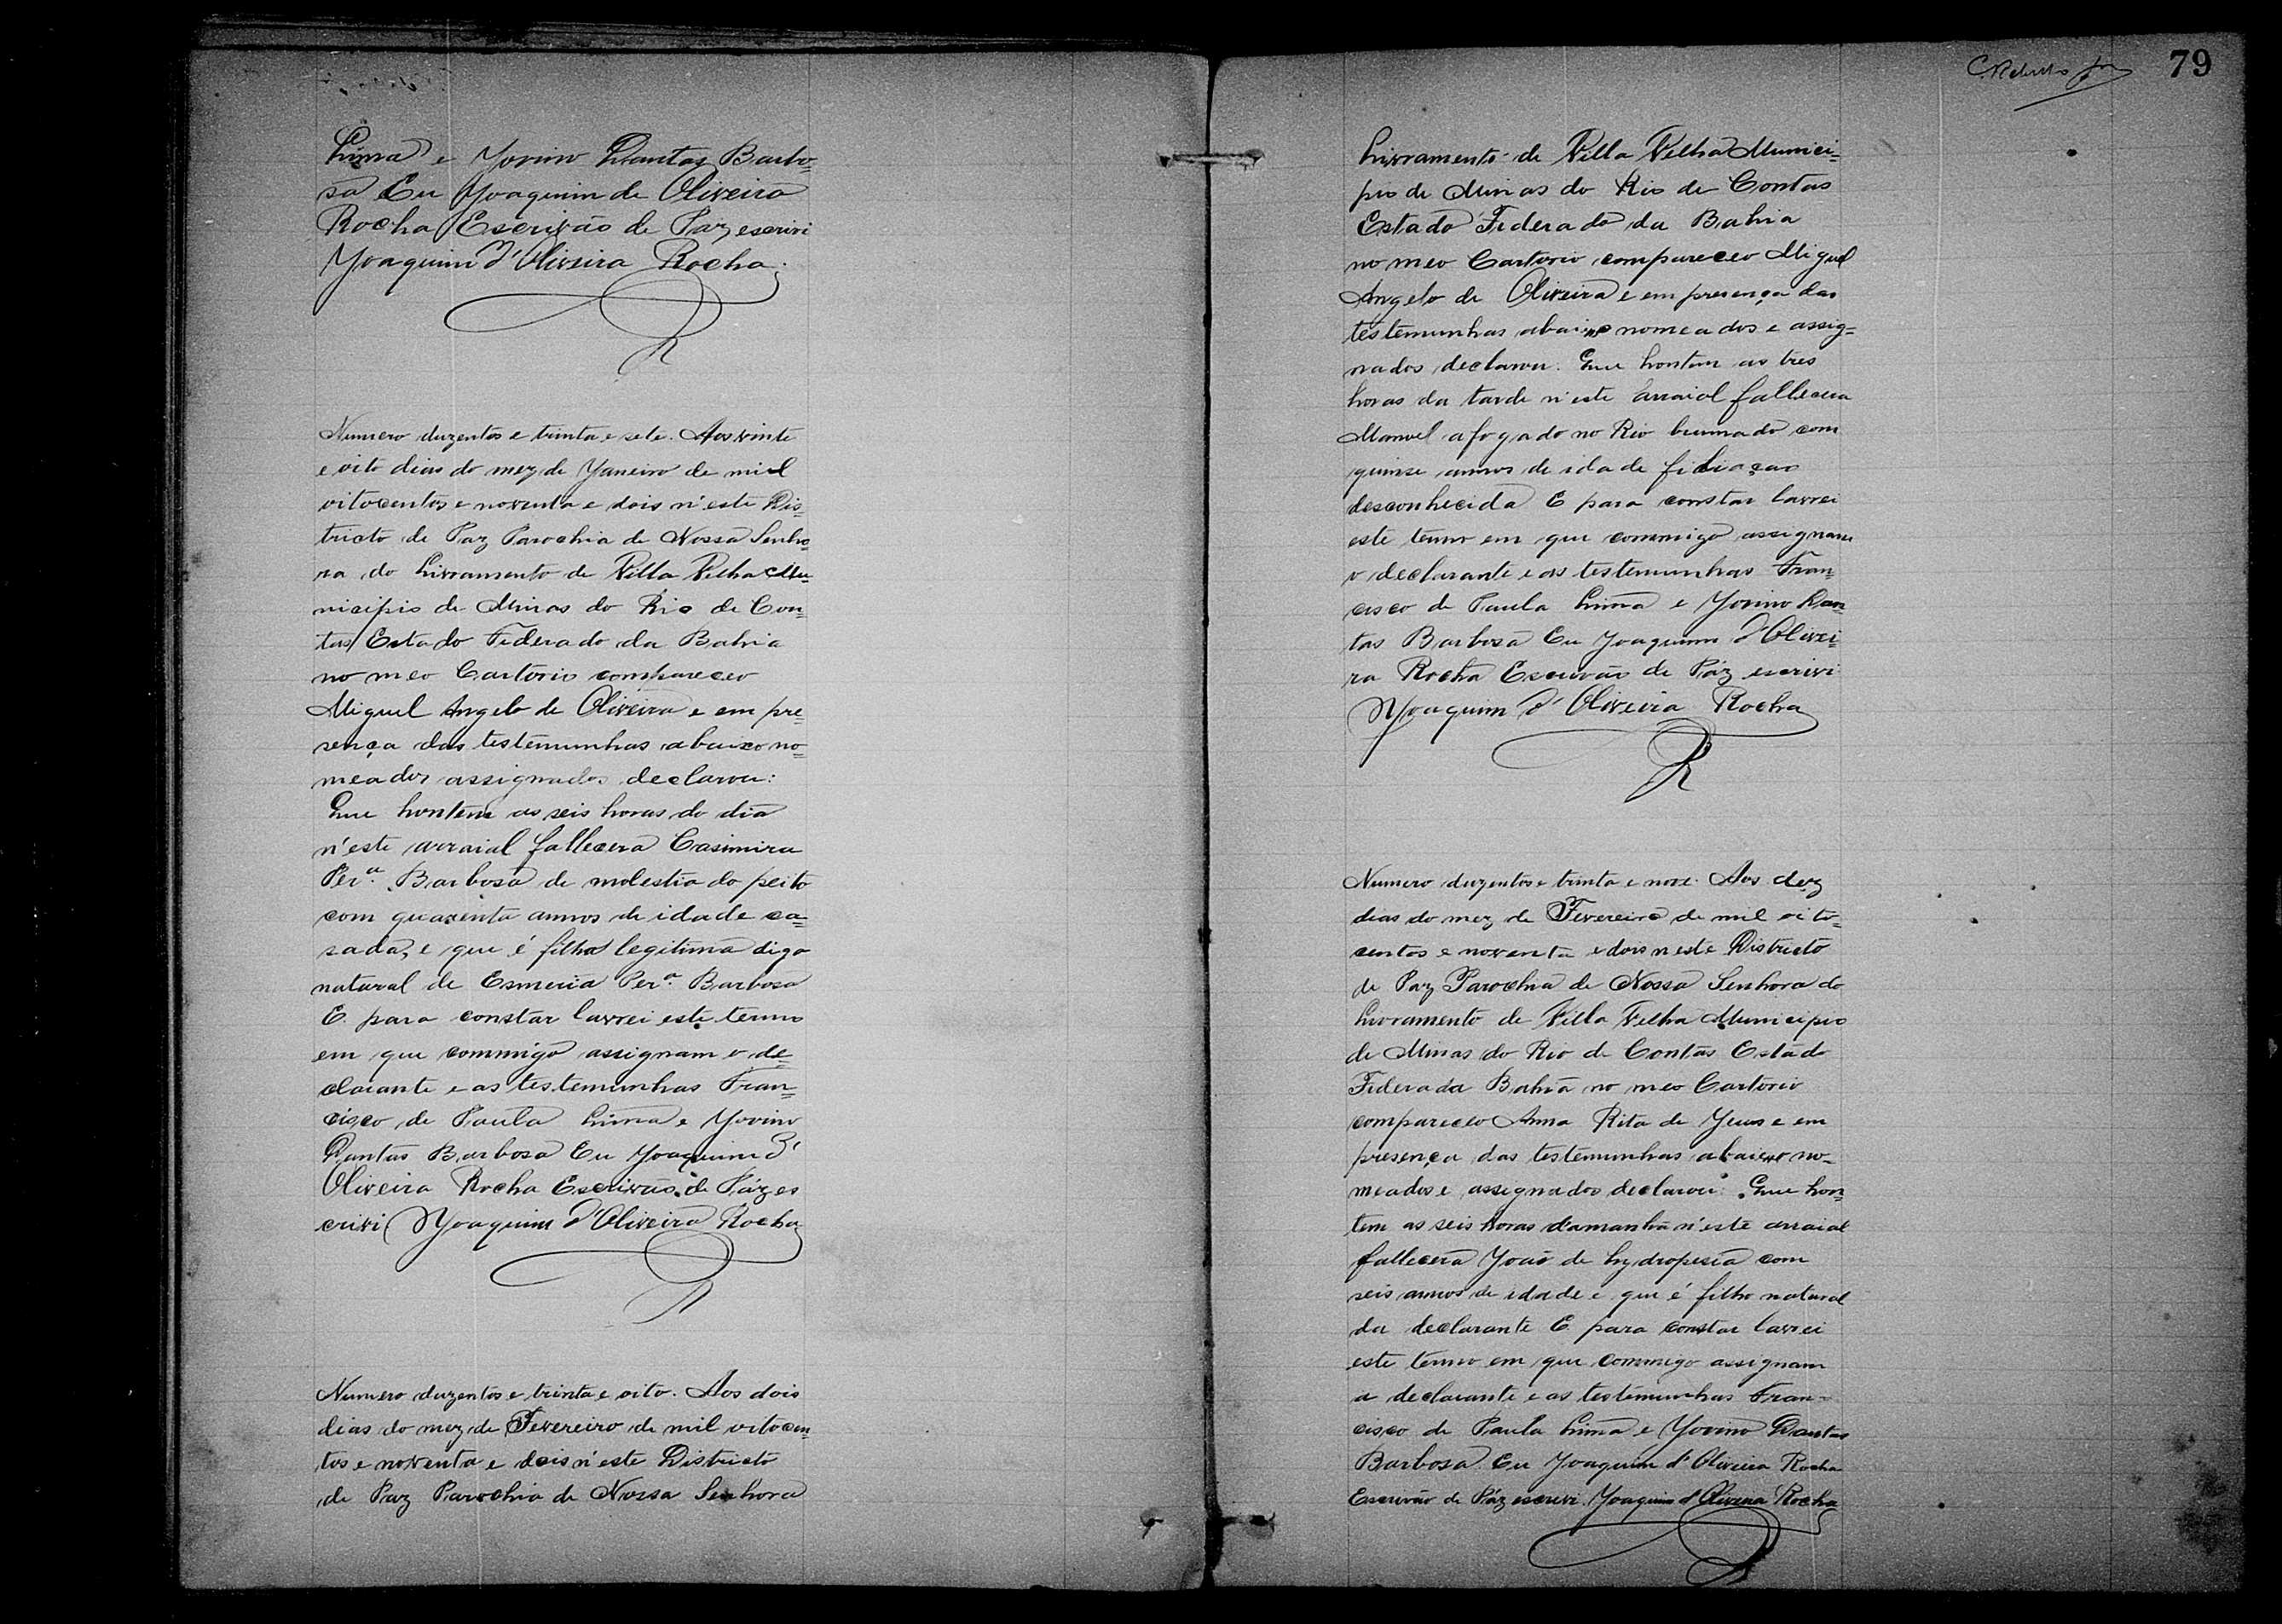 Lima e Jovino Dantas Barbo=
sa Eu Joaquim de Oliveira
Rocha Escrivão de Paz, escrivi
Joaquim d'Oliveira Rocha.
Numero duzentos e trinta e sete. Aos vinte
e oito dias do mez de Janeiro de mil
oitocentos e noventa e dois n'este Dis=
tricto de Paz Parochia de Nossa Senho=
ra do Livramento de Villa Velha Mu=
nicipio de Minas do Rio de Con=
tas Estado Federado da Bahia
no meo Cartorio compareceo
Miguel Angelo de Oliveira e em pre=
sença das testemunhas abaixo no=
meados assignados declarou:
Que hontem as seis horas do dia
n'este arraial fallecera Casimira
Per.ª Barbosa de molestia do peito
com quarenta annos de idade ca=
sada, e que é filha legitima digo
natural de Esmeria Per.ª Barbosa
E para constar lavrei este termo
em que commigo assignam o de=
clarante e as testemunhas Fran=
cisco de Paula Lima e Jovino
Dantas Barbosa Eu Joaquim d'
Oliveira Rocha Escrivão de Páz es
crivi Joaquim d'Oliveira Rocha
Numero duzentos e trinta e oito. Aos dois
dias do mez de Fevereiro de mil oitocen=
tos e noventa e dois n'este Districto
de Paz Parochia de Nossa Senhora
79
Livramento de Villa Velha Munici=
pio de Minas do Rio de Contas
Estado Federado da Bahia
no meo Cartorio compareceo Miguel
Angelo de Oliveira e em presença das
testemunhas abaixo nomeados e assig=
nados declarou: Que hontem as tres
horas da tarde n'este arraial fallecera
Manoel afogado no Rio brumado com
quinse annos de idade filiaçao
desconhecida E para constar lavrei
este termo em que commigo assignam
o declarante e as testemunhas Fran=
cisco de Paula Lima e Jovino Dan=
tas Barbosa Eu Joaquim d'Olivei=
ra Rocha Escrivão de Páz escrivi
Joaquim d'Oliveira Rocha
Numero duzentos e trinta e nove. Aos dez
dias do mez de Fevereiro de mil oito=
centos e noventa e dois neste Districto
de Paz Parochia de Nossa Senhora do
Livramento de Villa Velha Municipio
de Minas do Rio de Contas Estado
Federada Bahia no meo Cartorio
compareceo Anna Rita de Jesus e em
presença das testemunhas abaixo no=
meados e assignados declarou: Que hon=
tem as seis horas d'amanhã n'este arraial
fallecera João de hydropesia com
seis annos de idade e que é filho natural
da declarante E para constar lavrei
este termo em que commigo assignam
a declarante e as testemunhas Fran=
cisco de Paula Lima e Jovino Dantas
Barbosa. Eu Joaquim d'Oliveira Rocha
Escrivão de Páz escrivi. Joaquim d'Oliveira Rocha